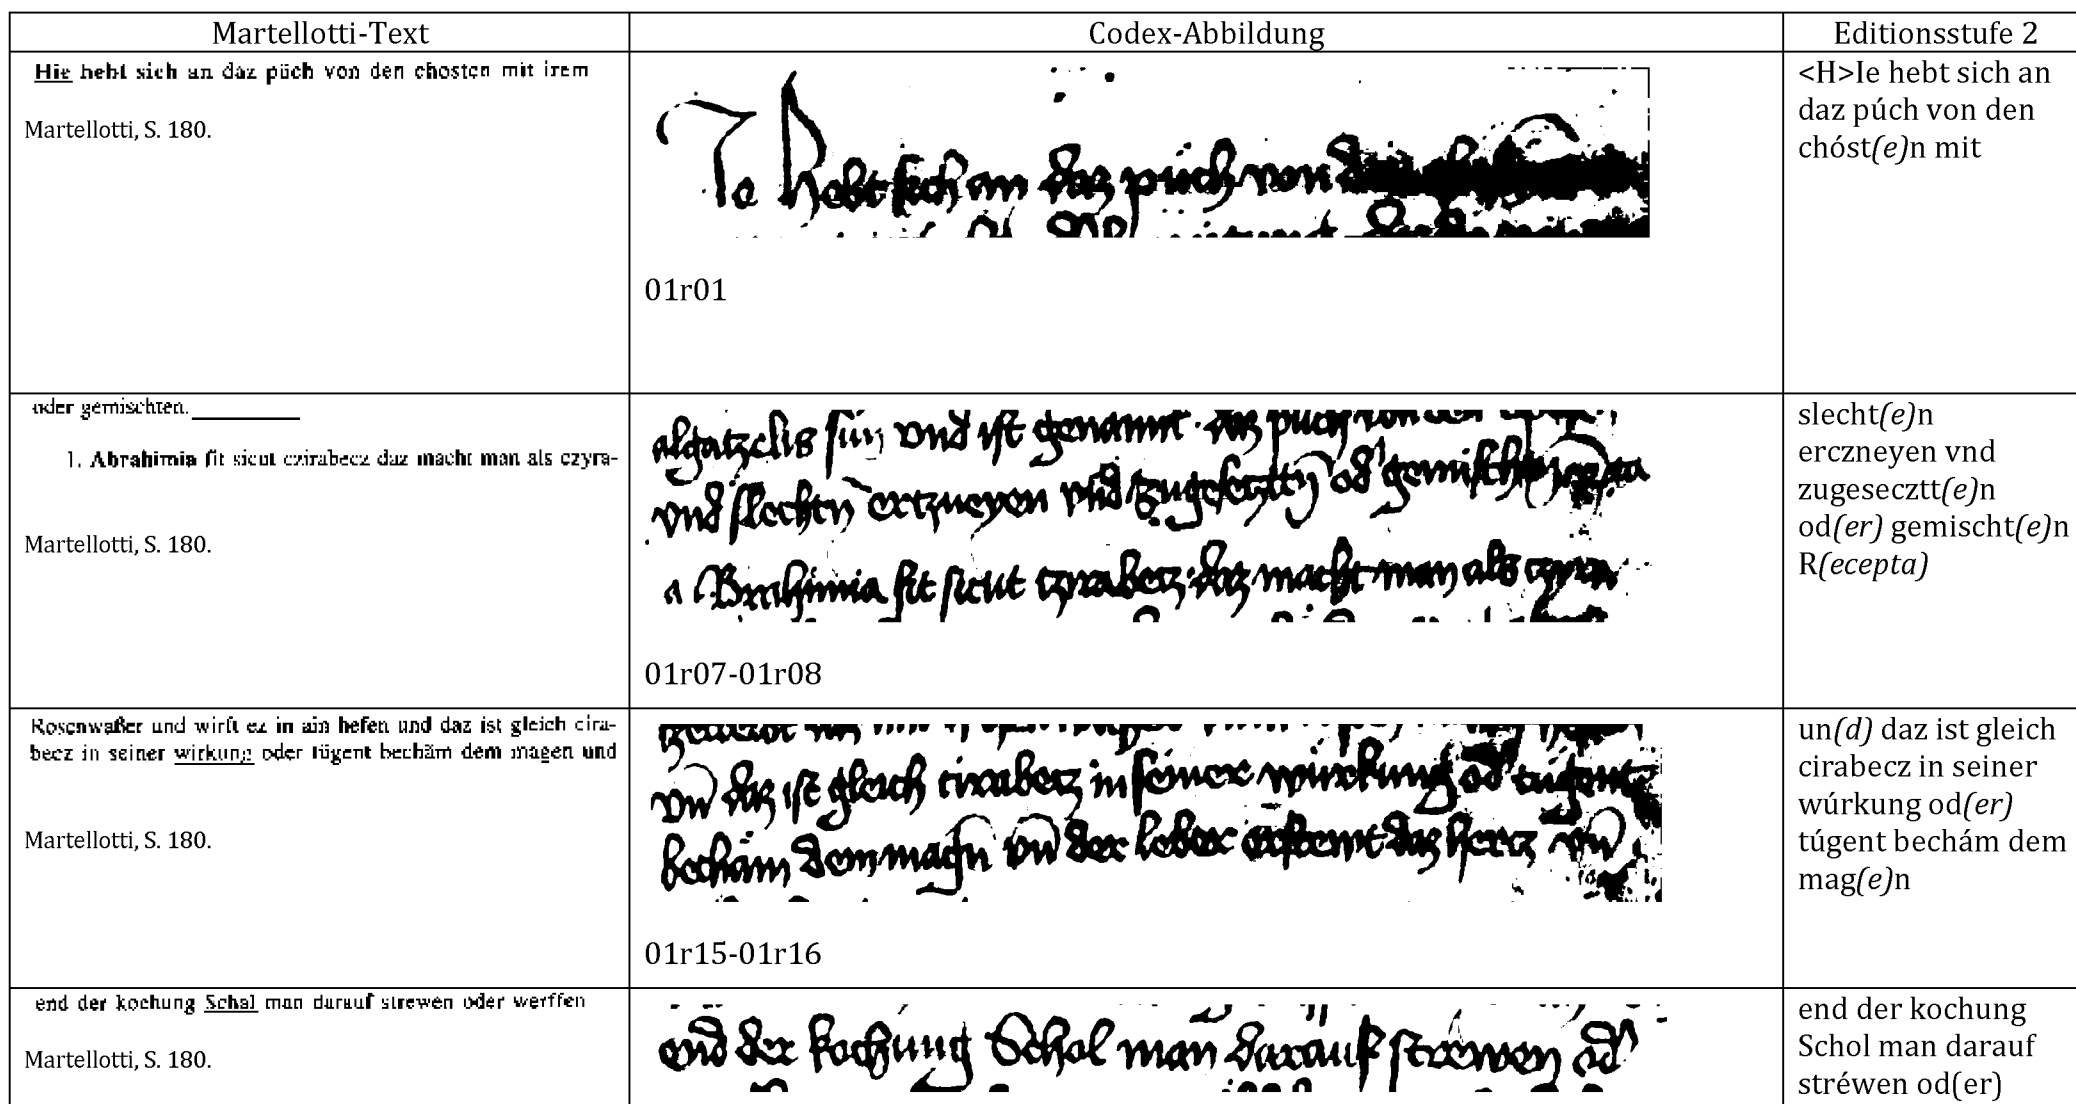 Martellotti-Text
Codex-Abbildung
Editionsstufe 2
Hie hebt sich an daz püch von den chosten mit irem
Martellotti, S. 180.
Ie hebt sich an daz púch von
01r01
<H>Ie hebt sich an
daz púch von den
chóst(e)n mit
oder gemischten.
1. Abrahimia fit sicut czirabecz daz macht man als czyra-
Martellotti, S. 180.
algatzelis sun vnd ist genannt daz púch von den
vnd slechtn ertzneyen vnd tzugesetzttn od gemischtn
a Brahimia fit sicut tzyrabetz daz macht man als czyra
01r07-01r08
slecht(e)n
erczneyen vnd
zugesecztt(e)n
od(er) gemischt(e)n
R(ecepta)
Rosenwaßer und wirft ez in ain hefen und daz ist gleich cira-
becz in seiner wirkung oder tügent bechäm dem magen und
Martellotti, S. 180.
vn daz ist gleich cirabetz in seiner würkung od tugent
bechäm dem magn vn der leber daz hertz vn
01r15-01r16
un(d) daz ist gleich
cirabecz in seiner
wúrkung od(er)
túgent bechám dem
mag(e)n
end der kochung Schal man darauf strewen oder werffen
Martellotti, S. 180.
end der kochung Schol man darauf strewen od
end der kochung
Schol man darauf
stréwen od(er)